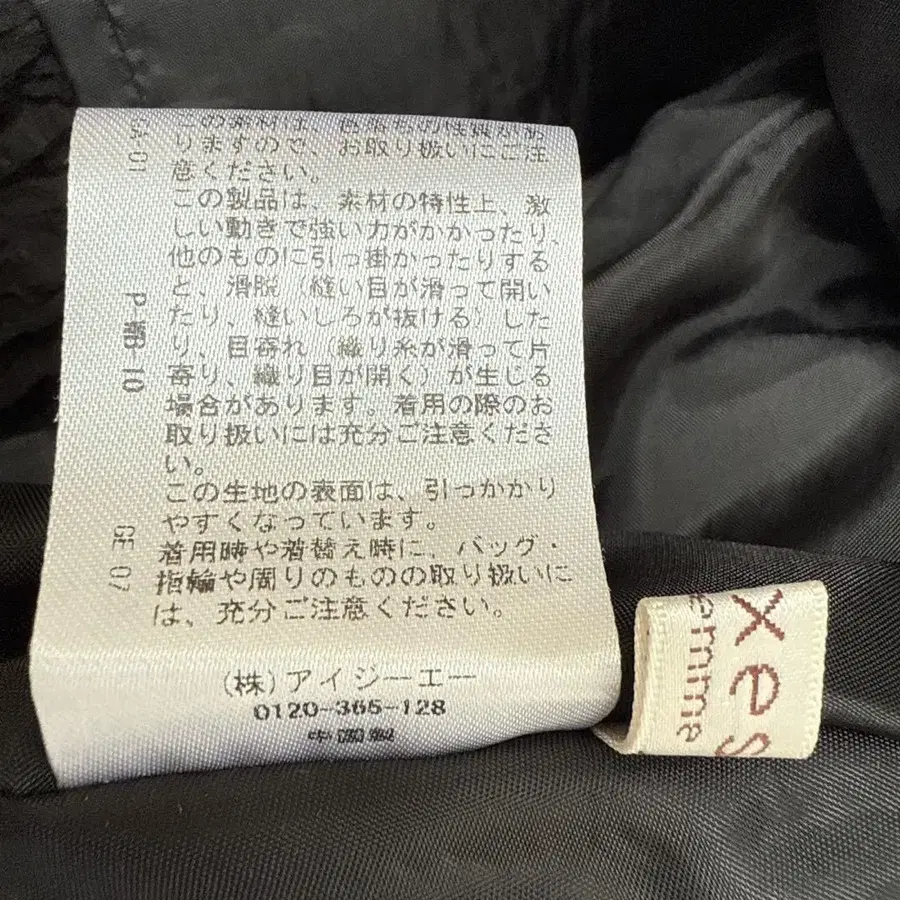 この素材は、色落ちの性質があ
りますので、お取り扱いにご注
意ください。
この製品は、素材の特性上、激
しい動きで強い力がかかったり、
他のものに引っ掛かったりする
と、滑脱（縫い目が滑って開い
たり、縫いしろが抜ける）した
り、目寄れ（織り糸が滑って片
寄り、織り目が開く）が生じる
場合があります。着用の際のお
取り扱いには充分ご注意くださ
い。
この生地の表面は、引っかかり
やすくなっています。
着用時や着替え時に、バッグ・
指輪や周りのものの取り扱いに
は、充分ご注意ください。
(株)アイジーエー
0120-365-128
中国製
GE 07
xes
emme